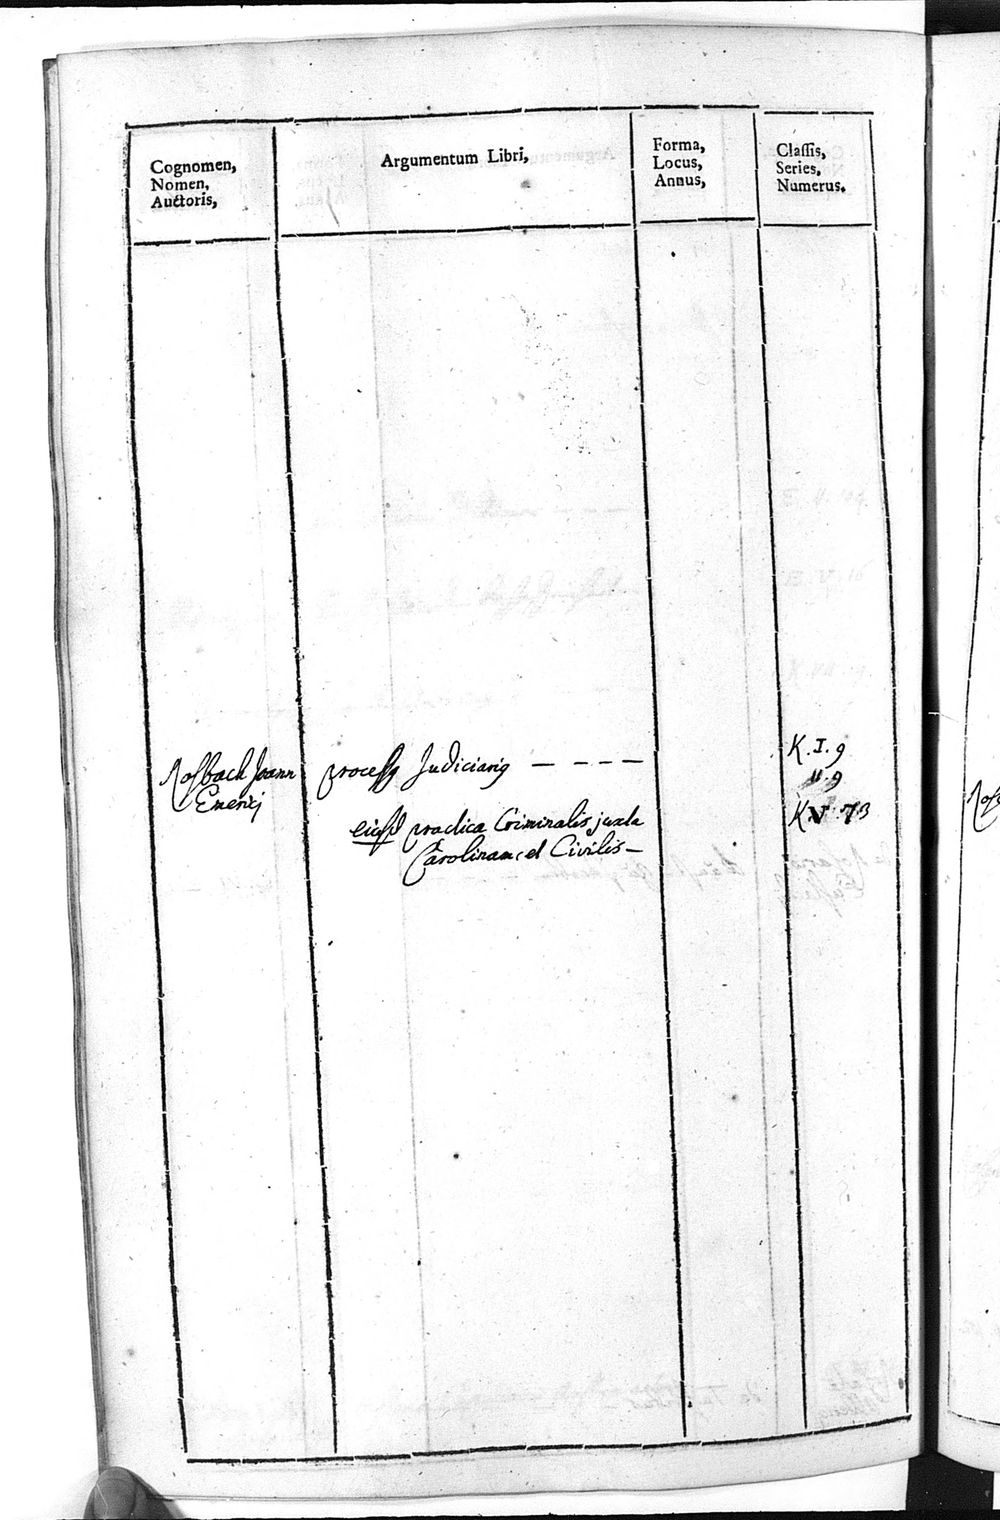 Cognomen,
Nomen,
Auctoris,
Argumentum Libri,
Forma,
Locus,
Annus,
Classis,
Series,
Numerus.
Rosbach Joann
Emerici
process Judiciarij — — — —
K. I. 9
11. 9
eiusd practica Criminalis juxta
Carolinam, et Civilis —
K V 73